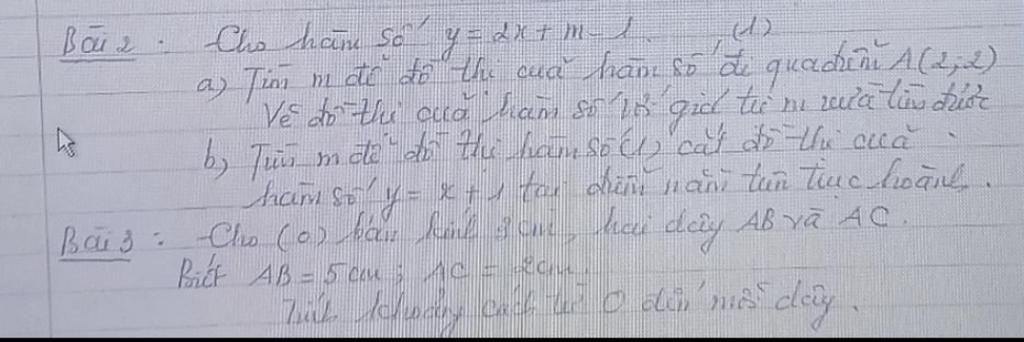 Bài 2 : Cho hàm số y = 2x + m - 1. (1)
a) Tìm m để đồ thị của hàm số đi qua điểm A(2;2)
Vẽ đồ thị của hàm số với giá trị m vừa tìm được
b) Tìm m để đồ thị hàm số (1) cắt đồ thị của
hàm số y = x + 1 tại điểm nằm trên trục hoành.
Bài 3 : Cho (O) bán kính 3cm, hai dây AB và AC.
Biết AB = 5cm ; AC = 2cm.
Tính khoảng cách từ O đến mỗi dây.